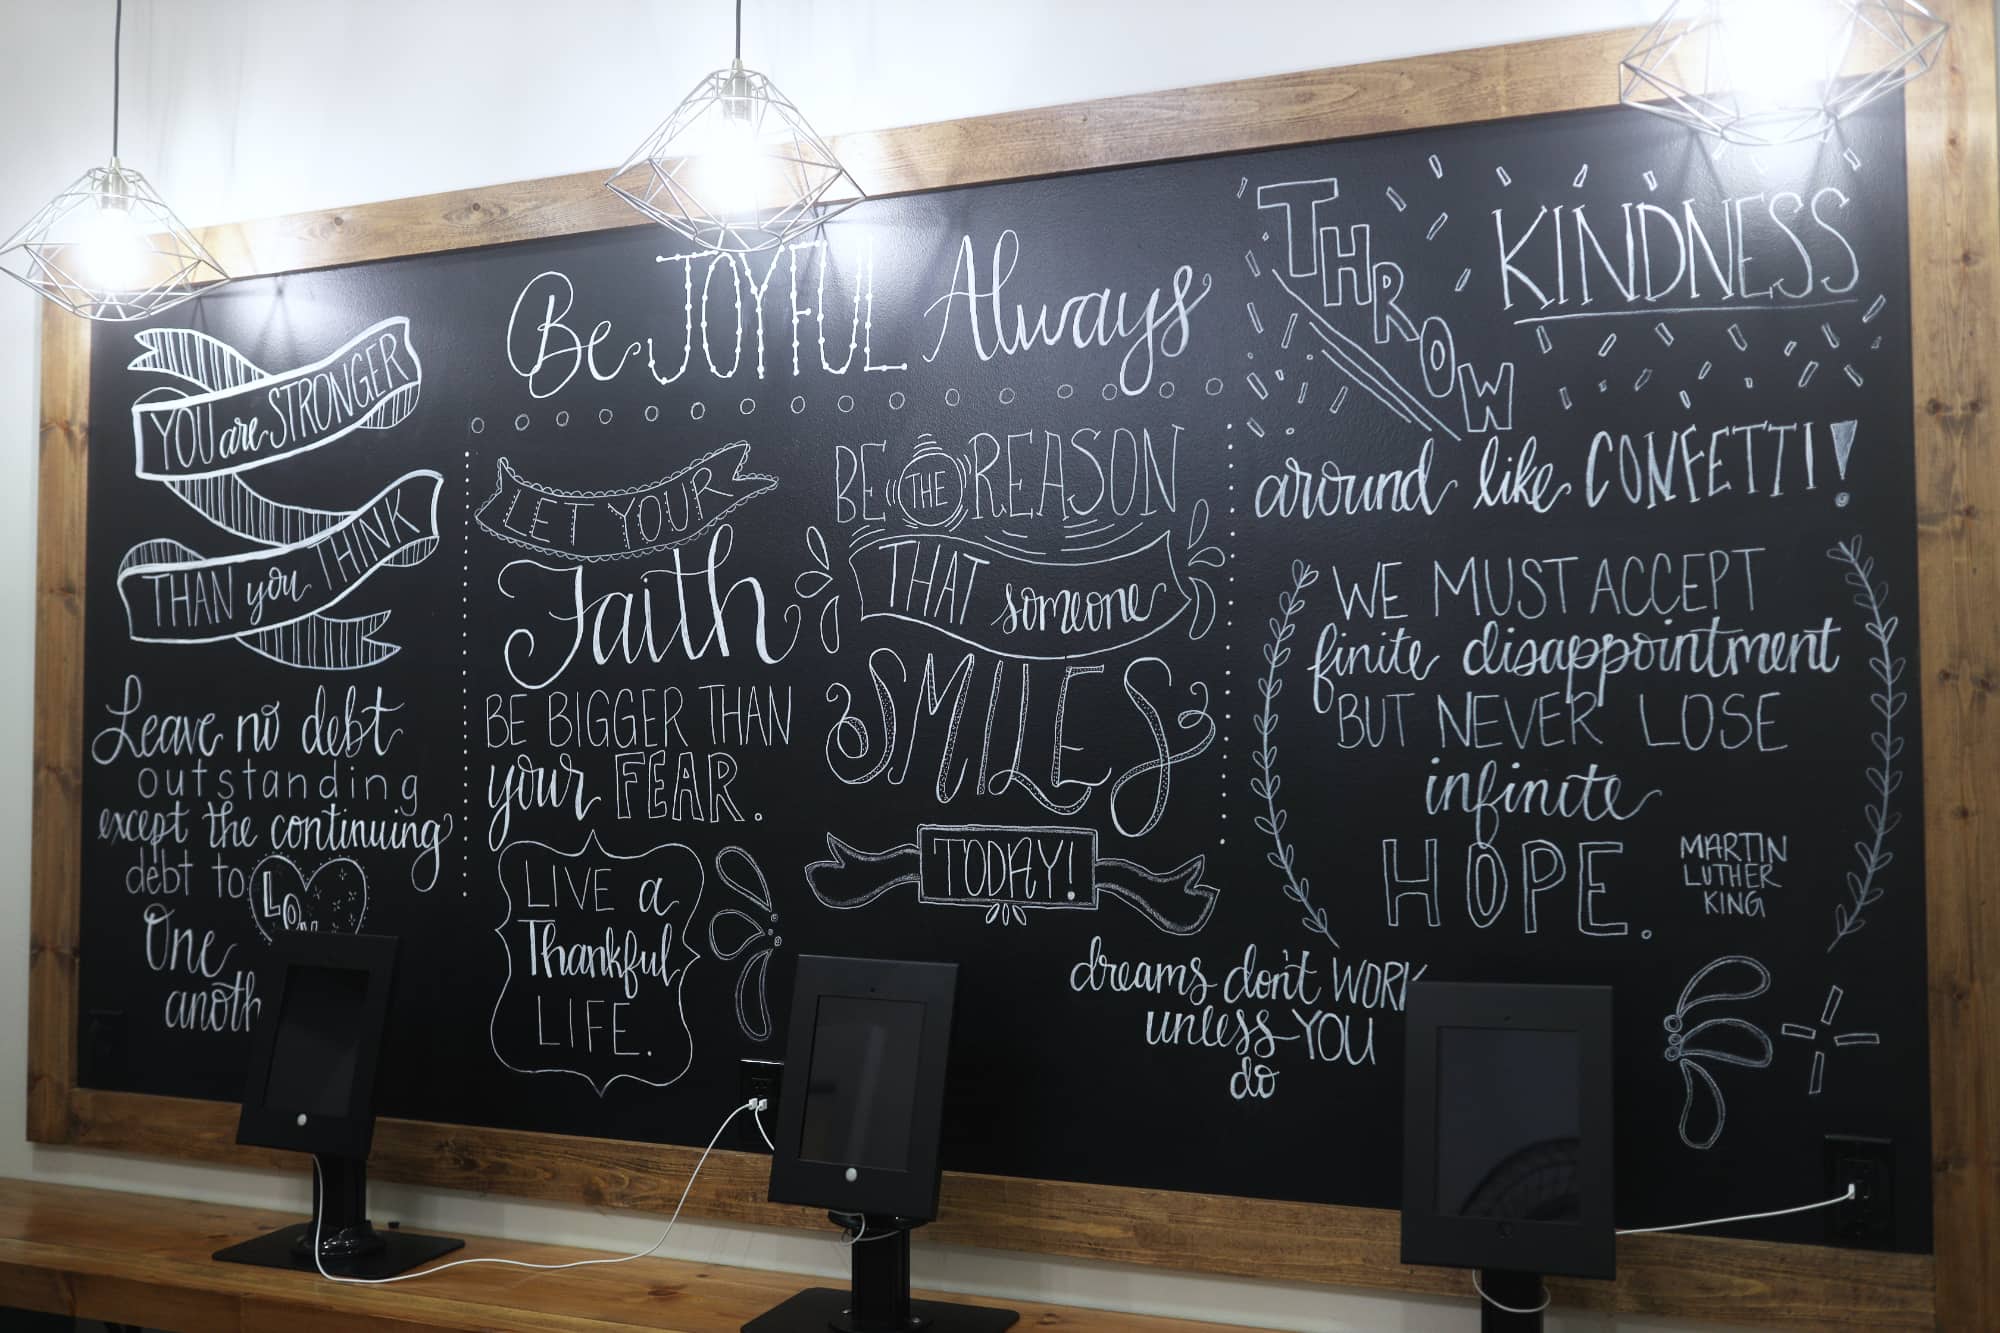 YOU are STRONGER
THAN you THINK
Leave no debt
outstanding
except the continuing
debt to
One
Be JOYFUL Always
LET YOUR
Faith
BE BIGGER THAN
your FEAR.
LIVE a
Thankful
LIFE.
BE THE REASON
THAT someone
SMILES
TODAY!
THROW KINDNESS
around like CONFETTI!
WE MUST ACCEPT
finite disappointment
BUT NEVER LOSE
infinite
HOPE.
MARTIN
LUTHER
KING
dreams don't WORK
unless YOU
do